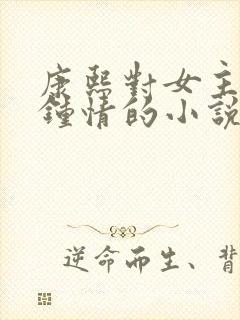 康熙對女主
鍾情的小說
逆命而生、背